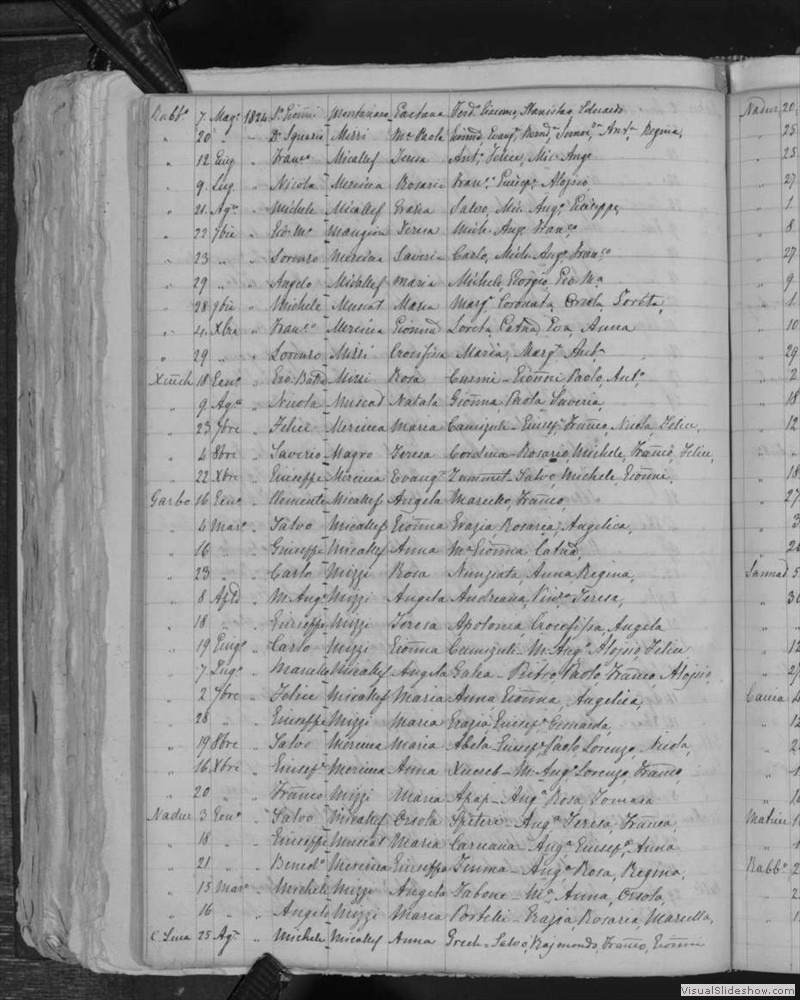 Rabb.º 7 Mag.º 1824 Montanaro Gaetana Ferd.º Giacomo, Stanislao, Eduardo Nadur 20
" 20 " " D.r Ignazio Mizzi M.ª Paola Regina, " 25
" 12 Giug " Fran.co Micallef Teresa Ant.º Felice, Mic. Ang.º " 25
" 9 Lug " Nicola Mercieca Rosaria Fran.co Giusep.e Aloisio " 27
" 21 Ag.to " Michele Micallef Grazia Salvo, Mic. Ang.º Giuseppe, " 1
" 22 7bre " Gio M.ª Mangion Teresa Mich. Ang.º Fran.co " 8
" 23 " " Lorenzo Mercieca Saveria Carlo, Mich. Ang.º Fran.co " 27
" 29 " " Angelo Micallef Maria Michele, Giorgio, Gio M.ª " 9
" 28 9bre " Michele Muscat Maria Marg.ª Coronata, Orsola, Loreta, " 1
" 4 Xbre " Fran.co Mercieca Gionna Loreta, Catna, Eva, Anna " 10
" 29 " " Lorenzo Mizzi Crocifissa Maria, Marg.ª Ant.ª " 29
Xeuch 18 Gen.º " Gio Batta Mizzi Rosa Curmi - Gionni Paolo, Ant.º " 2
" 9 Ag.to " Nicola Muscad Natala Gionna, Paola, Saveria, " 18
" 23 7bre " Felice Mercieca Maria Camizuli - Giusep.e Franco, Nicola, Felice, " 12
" 4 8bre " Saverio Magro Teresa Cordina - Rosario, Michele, Franco, Felice, "
" 22 Xbre " Giuseppe Mercieca Evang.ª Zammit Salvo, Michele, Gionni, " 18
Garbo 16 Gen.º " Clemente Micallef Angela Marcello, Franco, " 27
" 4 Mar.º " Salvo Micallef Gionna Grazia Rosaria, Angelica, " 3
" 16 " " Giuseppe Micallef Anna M.ª Gionna Catna, " 2
" 23 " " Carlo Mizzi Rosa Nunziata, Anna Regina, Sannad 5
" 8 Aple " M. Ang.º Mizzi Angela Andreana, Vinc.ª Teresa, " 3
" 18 " " Giuseppe Mizzi Teresa Apolonia, Crocefissa, Angela "
" 19 Giug.º " Carlo Mizzi Gionna Cumizuli M. Ang.º Aloisio, Felice " 12
" 7 Lug.º " Marcello Micallef Angela Galea - Pietro, Paolo, Franco, Aloisio, " 2
" 2 7bre " Felice Micallef Maria Anna Gionna, Angelica, Cauia 4
" 28 " " Giuseppe Mizzi Maria Grazia Giusep.a " 12
" 19 8bre " Salvo Mercieca Maria Abela - Giusep.e Paolo Lorenzo, Nicola, " 2
" 16 Xbre " Giusep.e Mercieca Anna Xuereb - M. Ang.º Lorenzo, Franco, " 1
" 20 " " Franco Mizzi Maria Apap - Ang.ª Rosa, Tomasa " 1
Nadur 3 Gen.º " Salvo Micallef Orsola Spiteri - Ang.ª Teresa, Franca, Matrice 1
" 18 " " Giuseppe Muscat Maria Caruana - Ang.ª Giusep.a Anna " 1
" 21 " " Bened.º Mercieca Giuseppa Imma - Ang.ª Rosa, Regina, Rabb.º 2
" 15 Mar.º " Michele Mizzi Angela Tabone - M.ª Anna, Orsola, " 2
" 16 " " Angelo Mizzi Maria Portelli - Grazia, Rosaria, Marcella, " 1
C. Luca 25 Ag.to " Michele Micallef Anna Grech - Salvo, Raimondo, Franco, Gionni
VisualSlideshow.com